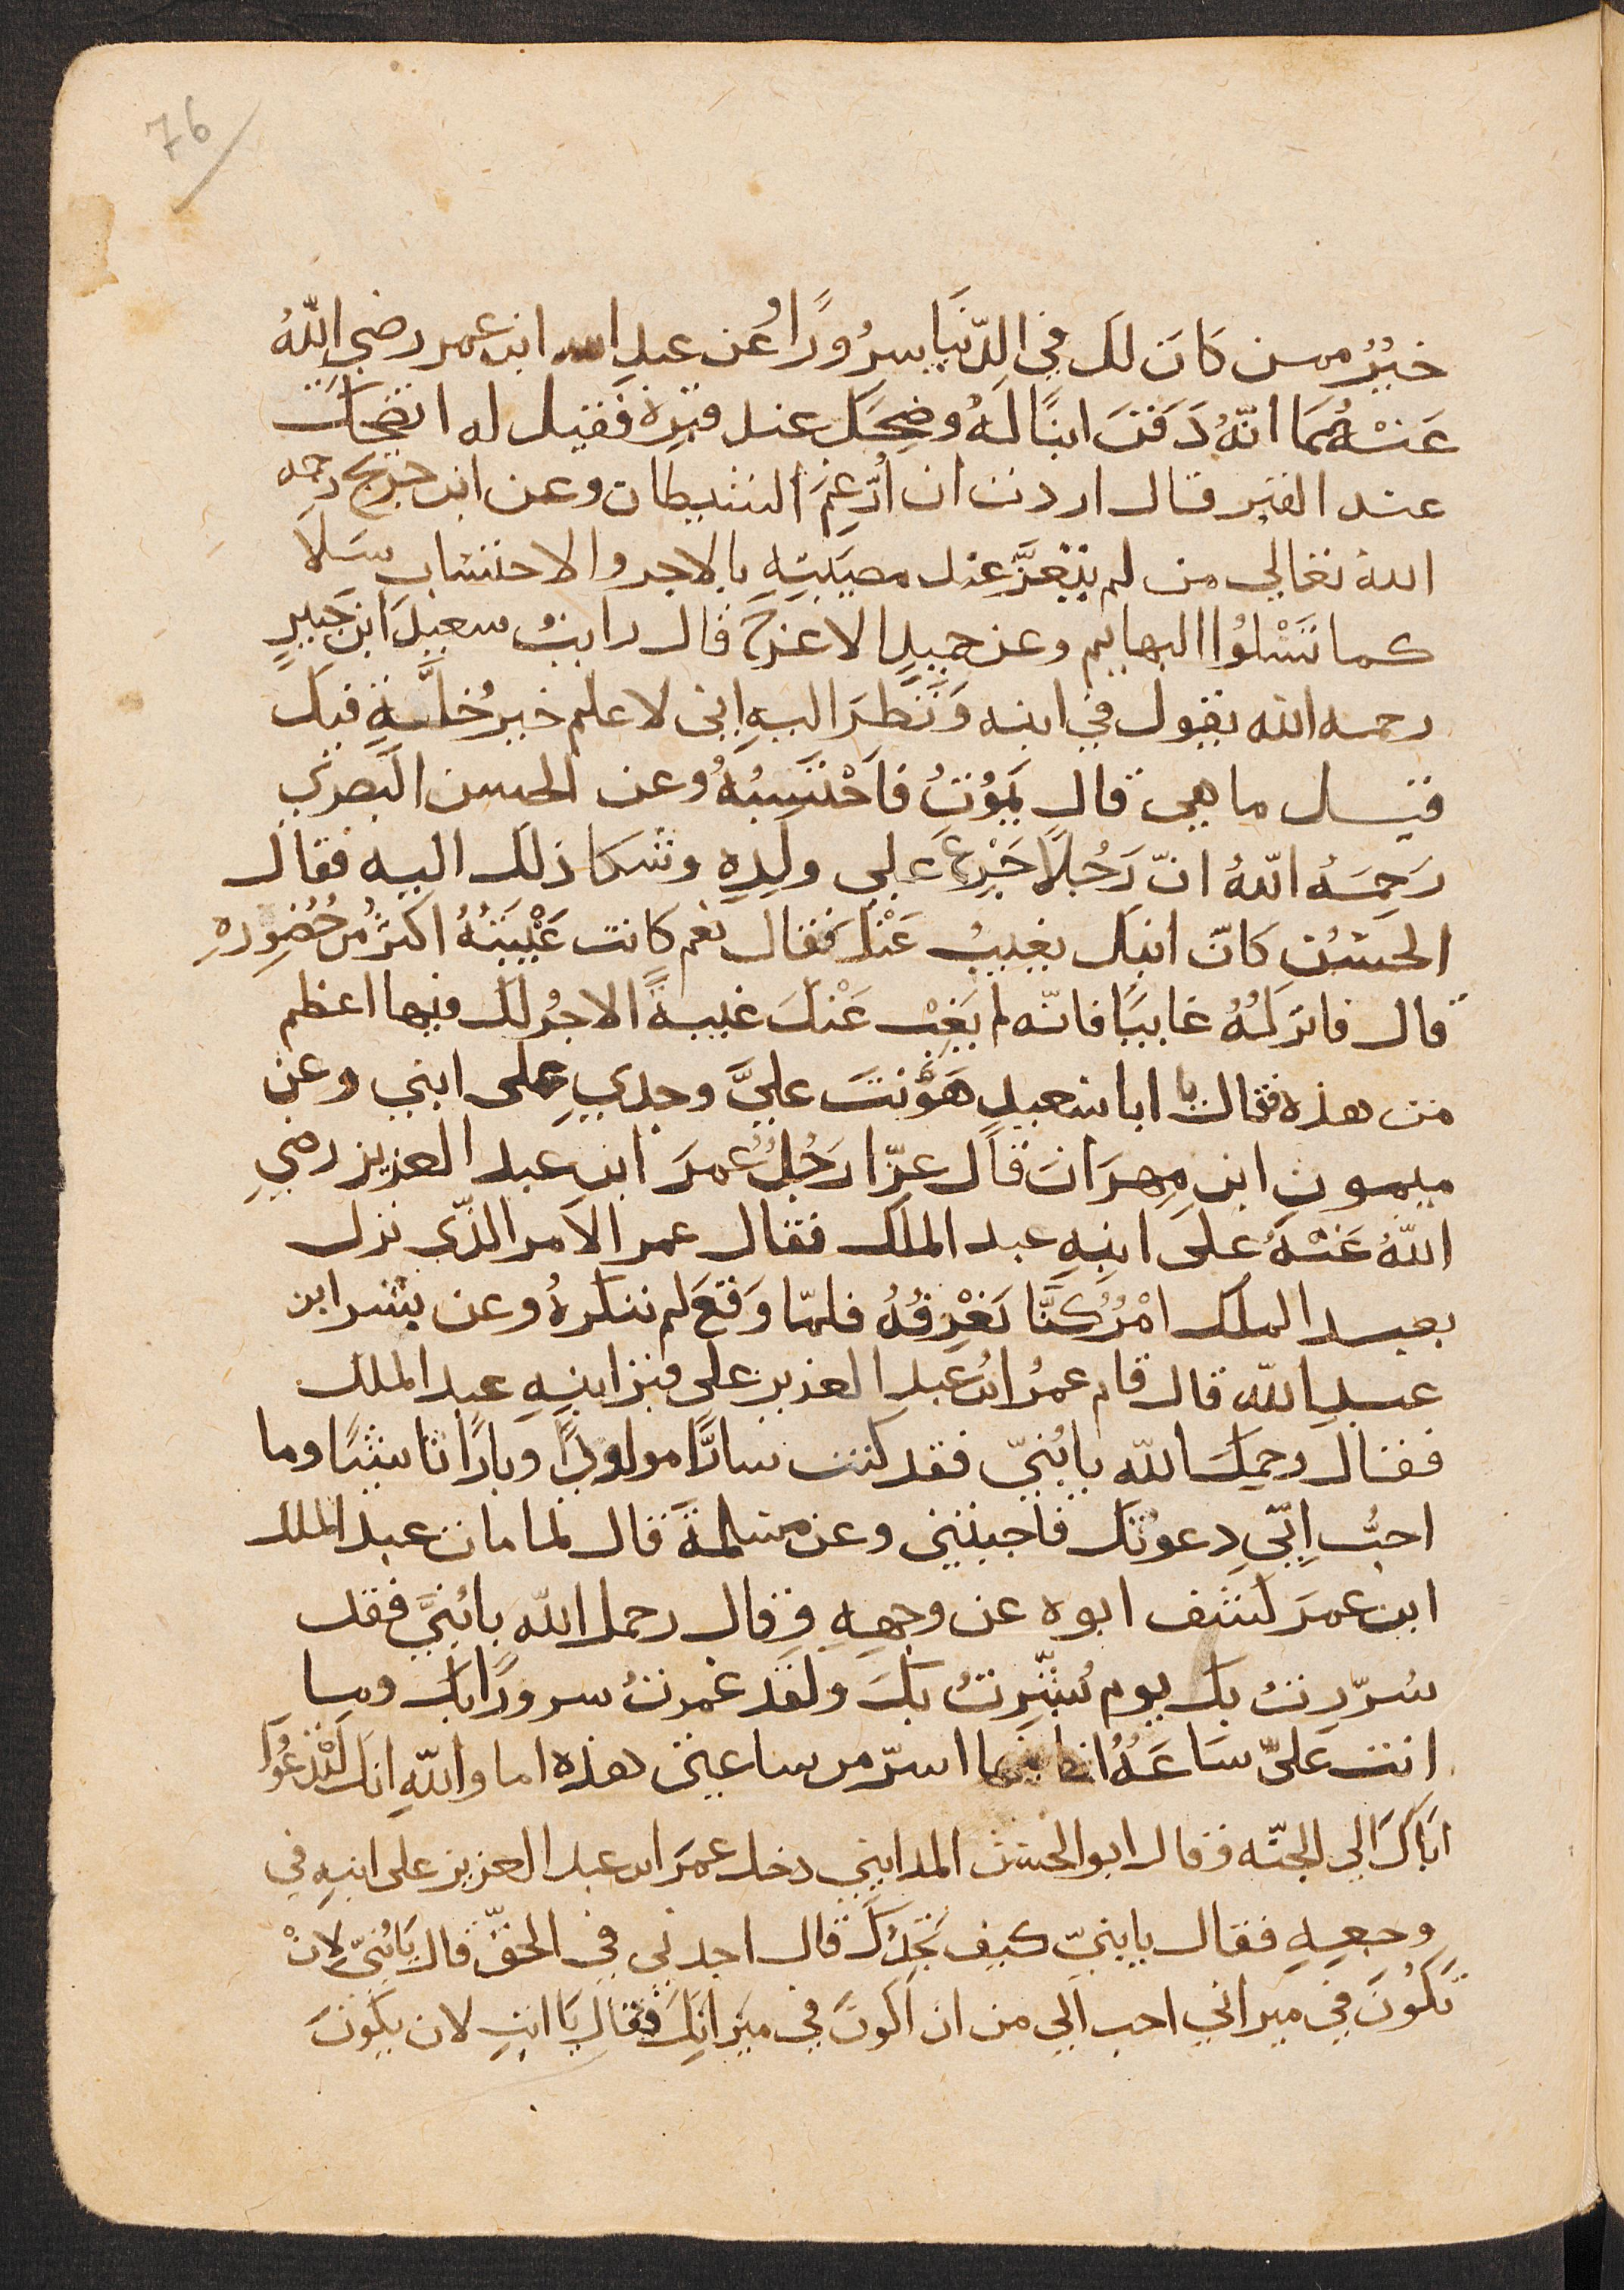 76
خيرٌ ممن كَانَ لك في الدّنيَا سرُورًا وعَن عبد الله ابن عمر رضي اللهُ
عَنْهُمَا انّهُ دَفَنَ ابنًا لهُ وضحِكَ عند قبرِهِ فقيل له اتضحك
عند القبر قال اردت ان أُرْغِمَ الشيطان وعن ابن جريج رحمه
الله تعالي من لم يتعزَّ عند مصيبتِهِ بالاجر والاحتساب سَلَا
كما تَسْلُوا البهايم وعن حميدٍ الاعرج قال رايتُ سعيدَ ابن جُبيرٍ
رحمه الله يقول في ابنه وَنَظَرَ اليهِ اني لاعلم خير خُلَّةٍ فيك
قيل ما هي قال يَمُوتُ فاَحْتَسِبُهُ وعن الحسن البَصري
رَحِمَهُ اللهُ انّ رَجُلًا جَزِعَ علي ولَدِهِ وشكا ذلك اليه فقال
الحسَنُ كانَ ابنك يغيبُ عَنْكَ فقال نعم كانت غَيْبَتُهُ اكثرُ من حُضُورِهِ
قال فاتركهُ غايبًا فانّه لم يَغِبْ عَنْكَ غيبةً الاجرُ لك فيها اعظم
من هذه فقال يا ابا سعيدٍ هَوّنتَ عليَّ وجدي على ابني وعن
ميمون ابن مِهرَان قال عزّا رَجُلٌ عُمرَ ابن عبد العزيز رضي
اللهُ عَنْهُ على ابنِهِ عبد الملك فقال عمر الامر الذّي نزل
بعبد الملك امْرٌ كُنَّا نَعْرِفُهُ فلمّا وَقَعَ لم ننكرهُ وعن بشر ابن
عبد الله قال قام عمرُ ابنُ عَبد العزيز على قبر ابنِهِ عبد الملك
فقال رحمك الله يا بُنيّ فقد كنت سارًّا مولودًا وبارًا ناشئًا وما
احبُّ انّي دعوتك فاجبتني وعن مسلمةَ قال لما مات عبد الملك
ابن عمرَ كشف ابوه عن وجهِهِ وقال رحمك الله يا بُنيَّ فقد
سُرِرتُ بك يوم بُشّرتُ بكَ ولقد عمرتُ سرورًا بك وما
اتت عَليّ سَاعَةٌ انا فيها اسرّ من ساعتي هذه اما واللهِ انك لتَدْعُوا
ابَاكَ الي الجنّه وقال ابو الحسن المدايني دخل عمرَ ابن عبد العزيز على ابنِهِ في
وجعِهِ فقال يا بنيّ كيف تَجِدُكَ قال اجدني في الحقّ قال يَا بُنيّ لانْ
تَكُونَ في ميزاني احب الي من ان اكونَ في ميزانِكَ فقال يَا ابتِ لان يكونَ